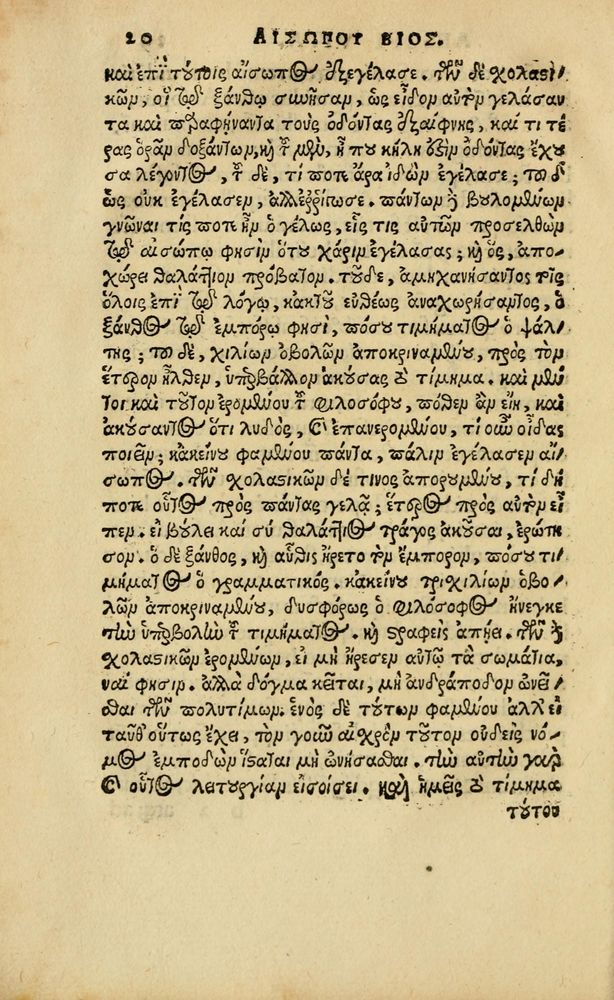 20 ΑΙΣΩΠΟΥ ΒΙΟΣ.
καὶ ἐπὶ τούτοις αἴσωπος ἐξεγέλασε. τῶν δὲ χολαστι-
κῶν, οἳ τῷ ξάνθῳ συνῆσαν, ὡς εἶδον αὐτὸν γελάσαν
τα καὶ παραφήναντα τοὺς ὀδόντας ἐξαίφνης, καί τι τέ
ρας ὁρᾶν δοξάντων, καὶ τοῦ μὲν, ἤ που κήλη ἐστὶν ὀδόντας ἔχου
σα λέγοντος, τοῦ δὲ, τί ποτε ἄρα ἰδὼν ἐγέλασε; τοῦ δ
ὡς οὐκ ἐγέλασεν, ἀλλ' ἐρρίγωσε. πάντων δὲ βουλομένων
γνῶναι τίς ποτε ἦν ὁ γέλως, εἷς τις αὐτῶν προσελθὼν
τῷ αἰσώπῳ φησὶν ὅτου χάριν ἐγέλασας; καὶ ὃς, ἀπο-
χώρει θαλάττιον πρόβατον. τοῦ δὲ, ἀμηχανήσαντος τοῖς
ὅλοις ἐπὶ τῷ λόγῳ, κἀκ τοῦ εὐθέως ἀναχωρήσαντος, ὁ
ξάνθος τῷ ἐμπόρῳ φησὶ, πόσου τιμήματος ὁ ψάλ-
της; τοῦ δὲ, χιλίων ὀβολῶν ἀποκριναμένου, πρὸς τὸν
ἕτερον ἦλθεν, ὑπερβάλλον ἀκούσας τὸ τίμημα. καὶ μέν
τοι καὶ τοῦτον ἐρομένου τοῦ φιλοσόφου, πόθεν ἂν εἴη, καὶ
ἀκούσαντος ὅτι λυδὸς, καὶ ἐπανερομένου, τί οὖν οἶδας
ποιεῖν; κἀκείνου φαμένου πάντα, πάλιν ἐγέλασεν αἴ-
σωπος. τῶν χολαστικῶν δέ τινος ἀπορουμένου, τί δή
ποτε οὗτος πρὸς πάντας γελᾷ; ἕτερος πρὸς αὐτὸν εἶ
πεν. εἰ βούλει καὶ σὺ θαλάττιος τράγος ἀκοῦσαι, ἐρώτη
σον. ὁ δὲ ξάνθος, καὶ αὖθις ἤρετο τὸν ἔμπορον, πόσου τι-
μήματος ὁ γραμματικός. κἀκείνου τριχιλίων ὀβο-
λῶν ἀποκριναμένου, δυσφόρως ὁ φιλόσοφος ἤνεγκε
τὴν ὑπερβολὴν τοῦ τιμήματος. καὶ στραφεὶς ἀπῄει. τῶν δὲ
χολαστικῶν ἐρομένων, εἰ μὴ ἤρεσεν αὐτῷ τὰ σωμάτια,
ναί φησιν. ἀλλὰ δόγμα κεῖται, μὴ ἀνδράποδον ὠνεῖ-
σθαι τῶν πολυτίμων. ἑνὸς δὲ τούτων φαμένου ἀλλ' εἰ
ταῦθ' οὕτως ἔχει, τὸν γοῦν αἰσχρὸν τοῦτον οὐδεὶς νό-
μος ἐμποδὼν ἵσταται μὴ ὠνήσασθαι. τὴν αὐτὴν γὰρ
καὶ οὗτος λειτουργίαν εἰσοίσει. καὶ ἡμεῖς τὸ τίμημα
τούτου